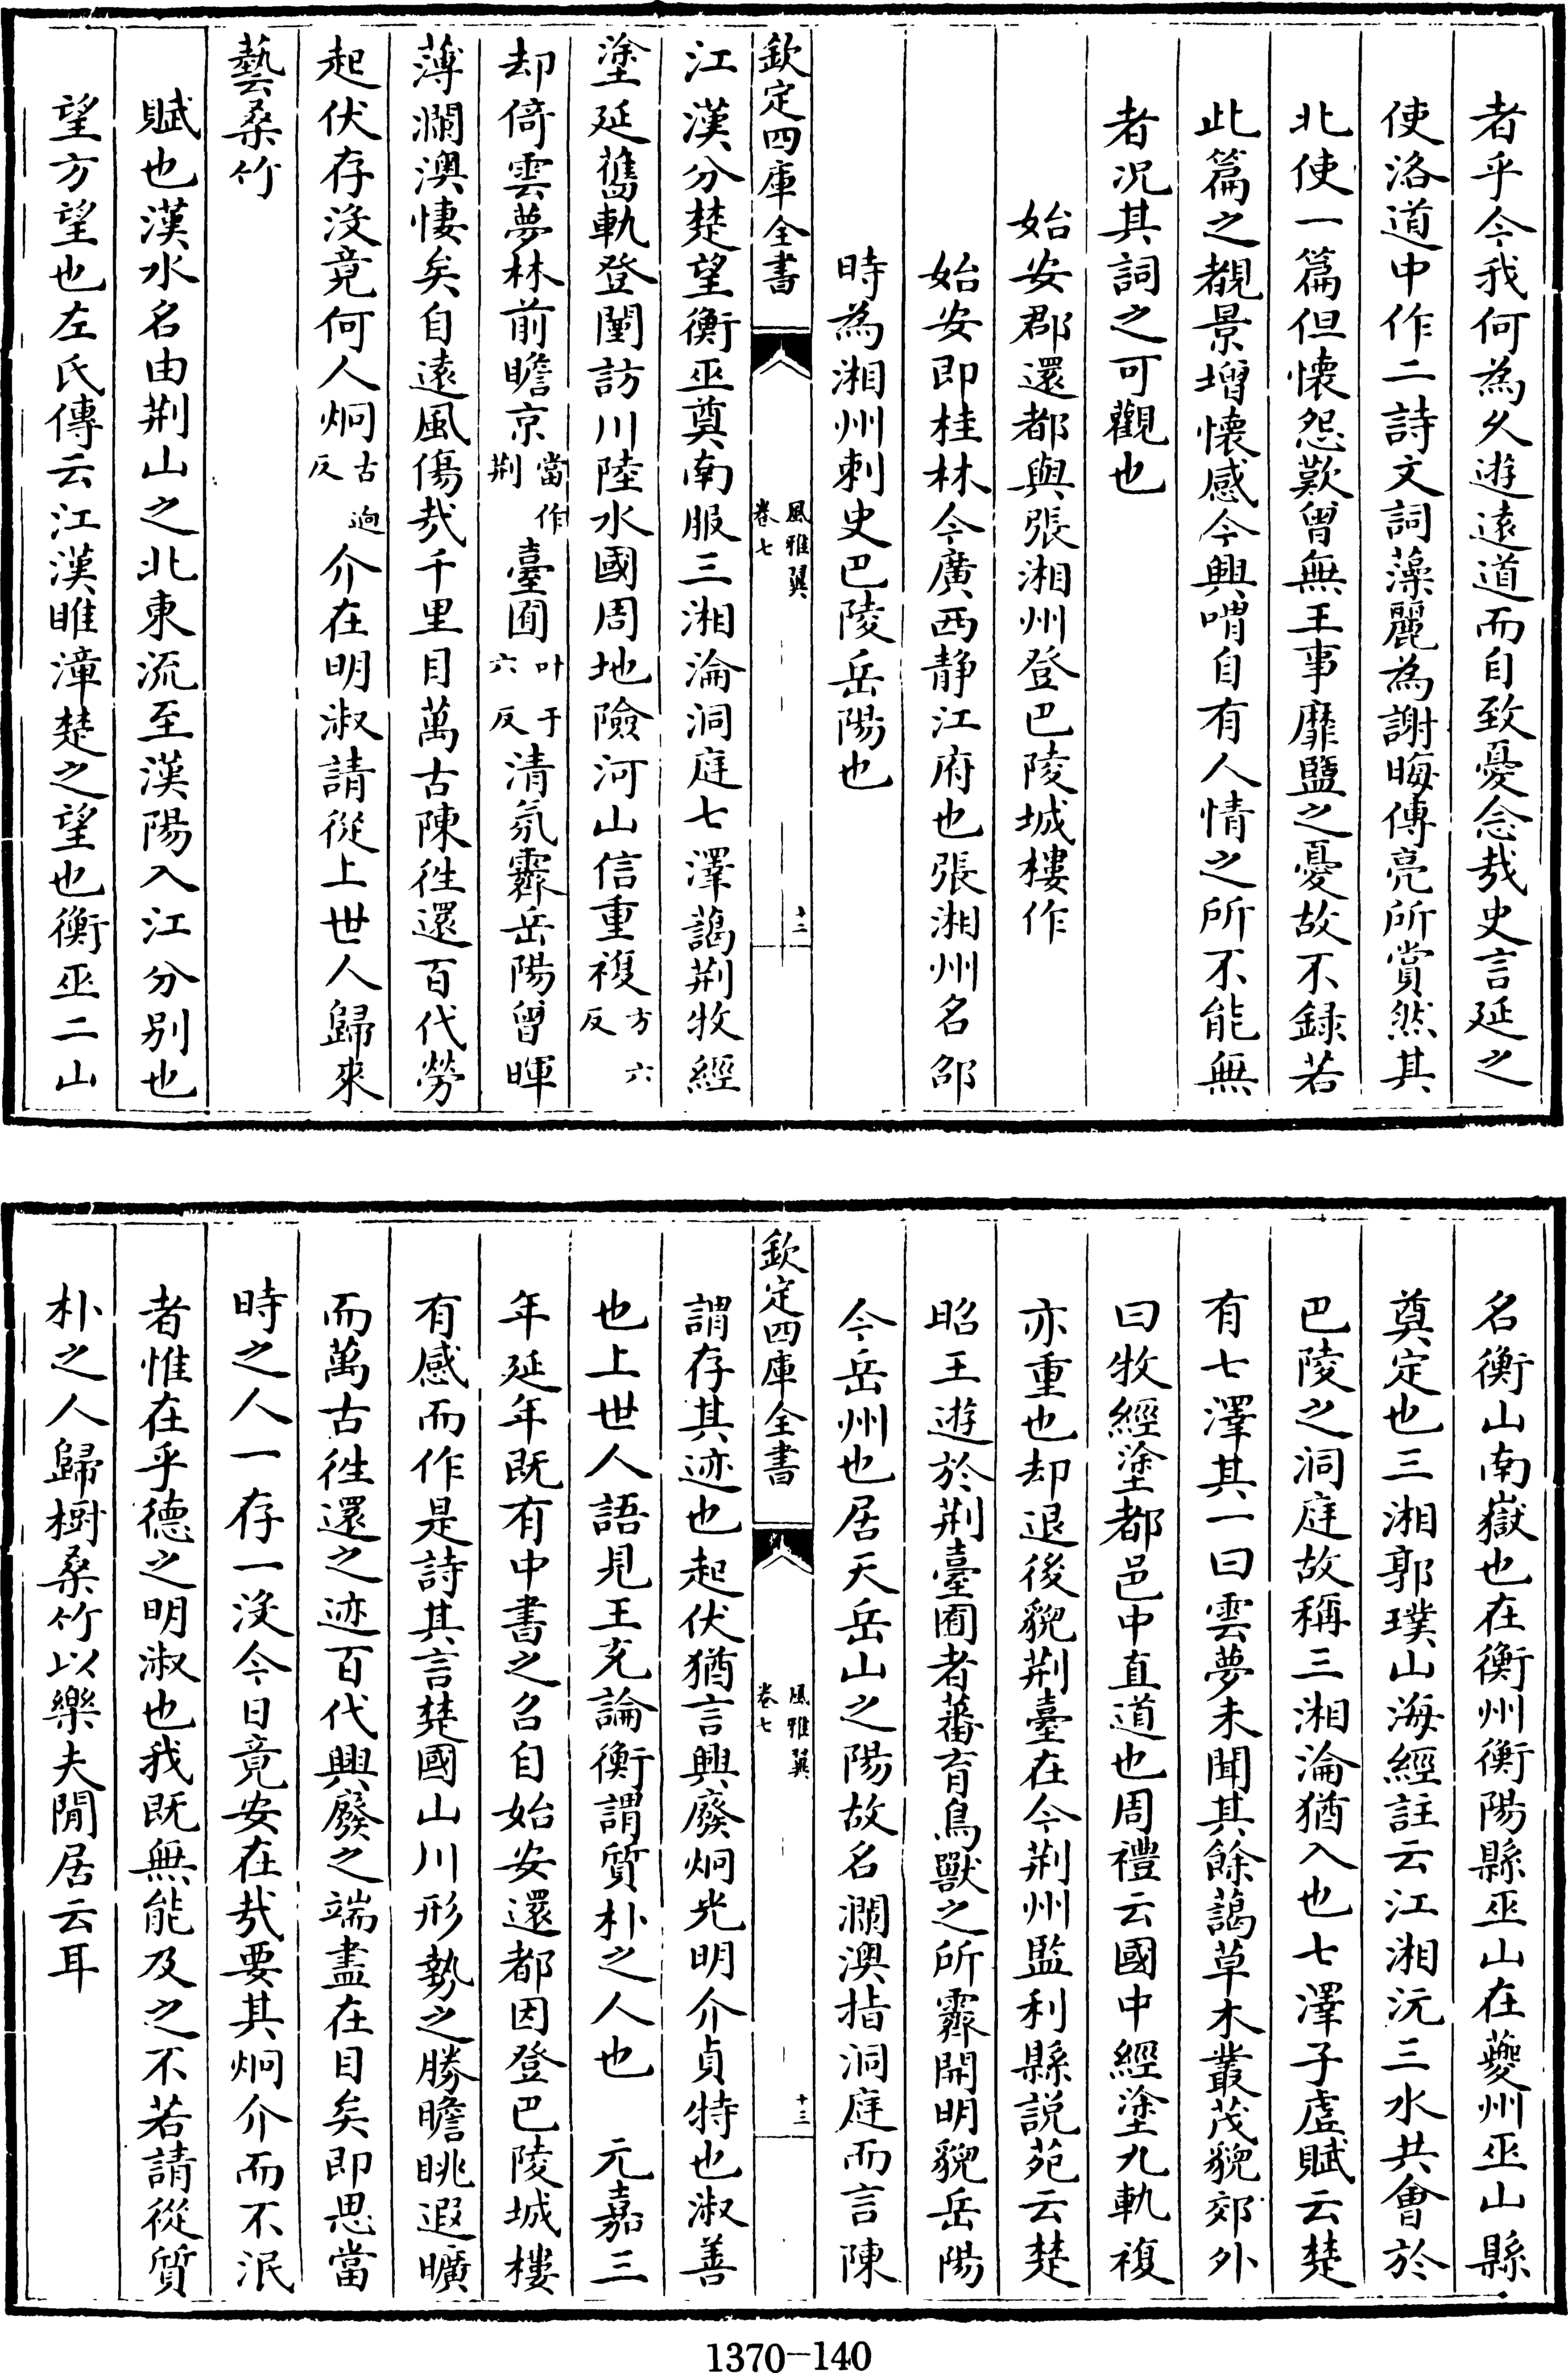 者乎今我何為久遊遠道而自致憂念哉史言延之
使洛道中作二詩文詞藻麗為謝晦傅亮所賞然其
北使一篇但懷怨歎曾無王事靡盬之憂故不録若
此篇之覩景增懷感今興喟自有人情之所不能無
者况其詞之可觀也
始安郡還都與張湘州登巴陵城樓作
始安即桂林今廣西静江府也張湘州名邵
時為湘州刺史巴陵岳陽也
欽定四庫全書
風雅翼
卷七
十二
江漢分楚望衡巫奠南服三湘淪洞庭七澤藹荆牧經
塗延舊軌登闉訪川陸水國周地險河山信重複方六反
却倚雲夢林前瞻京當作荆臺囿叶于六反清氛霽岳陽曾暉
薄瀾澳悽矣自遠風傷哉千里目萬古陳徃還百代勞
起伏存没竟何人炯古迥反介在明淑請從上世人歸來
藝桑竹
賦也漢水名由荆山之北東流至漢陽入江分别也
望方望也左氏傳云江漢睢漳楚之望也衡巫二山
名衡山南嶽也在衡州衡陽縣巫山在夔州巫山縣
奠定也三湘郭璞山海經註云江湘沅三水共會於
巴陵之洞庭故稱三湘淪猶入也七澤子虚賦云楚
有七澤其一曰雲夢未聞其餘藹草木叢茂貌郊外
曰牧經塗都邑中直道也周禮云國中經塗九軌複
亦重也却退後貌荆臺在今荆州監利縣説苑云楚
昭王遊於荆臺囿者蕃育鳥獸之所霽開明貌岳陽
今岳州也居天岳山之陽故名瀾澳指洞庭而言陳
欽定四庫全書
風雅翼
卷七
十三
謂存其迹也起伏猶言興廢炯光明介貞特也淑善
也上世人語見王充論衡謂質朴之人也　元嘉三
年延年既有中書之召自始安還都因登巴陵城樓
有感而作是詩其言楚國山川形勢之勝瞻眺遐曠
而萬古徃還之迹百代興廢之端盡在目矣即思當
時之人一存一没今日竟安在哉要其炯介而不泯
者惟在乎德之明淑也我既無能及之不若請從質
朴之人歸樹桑竹以樂夫閒居云耳
1370-140